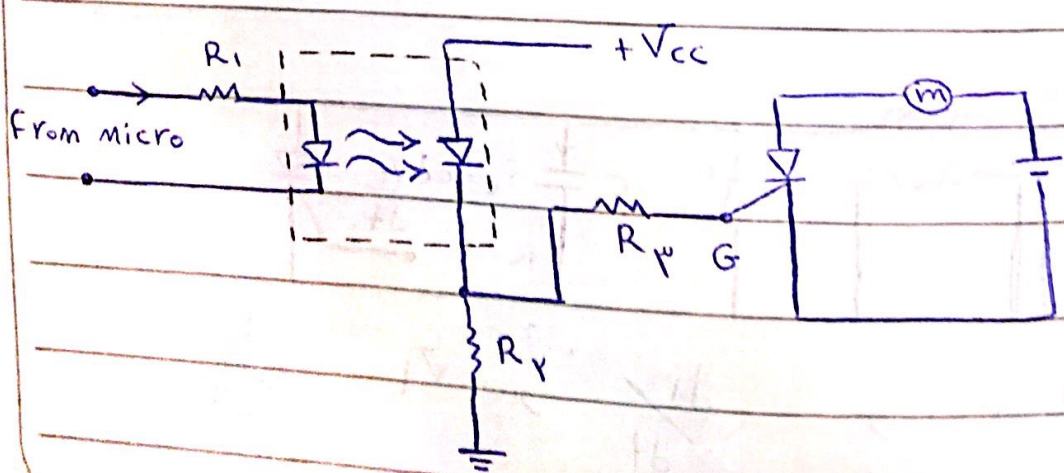 R۱
+Vcc
From micro
m
R۳
G
R۲